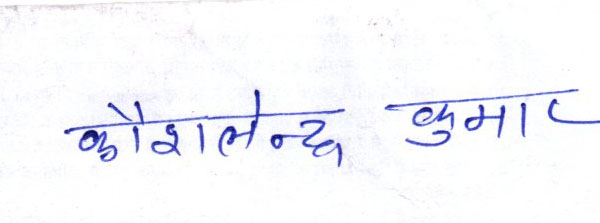 कौशलेन्द्र कुमार